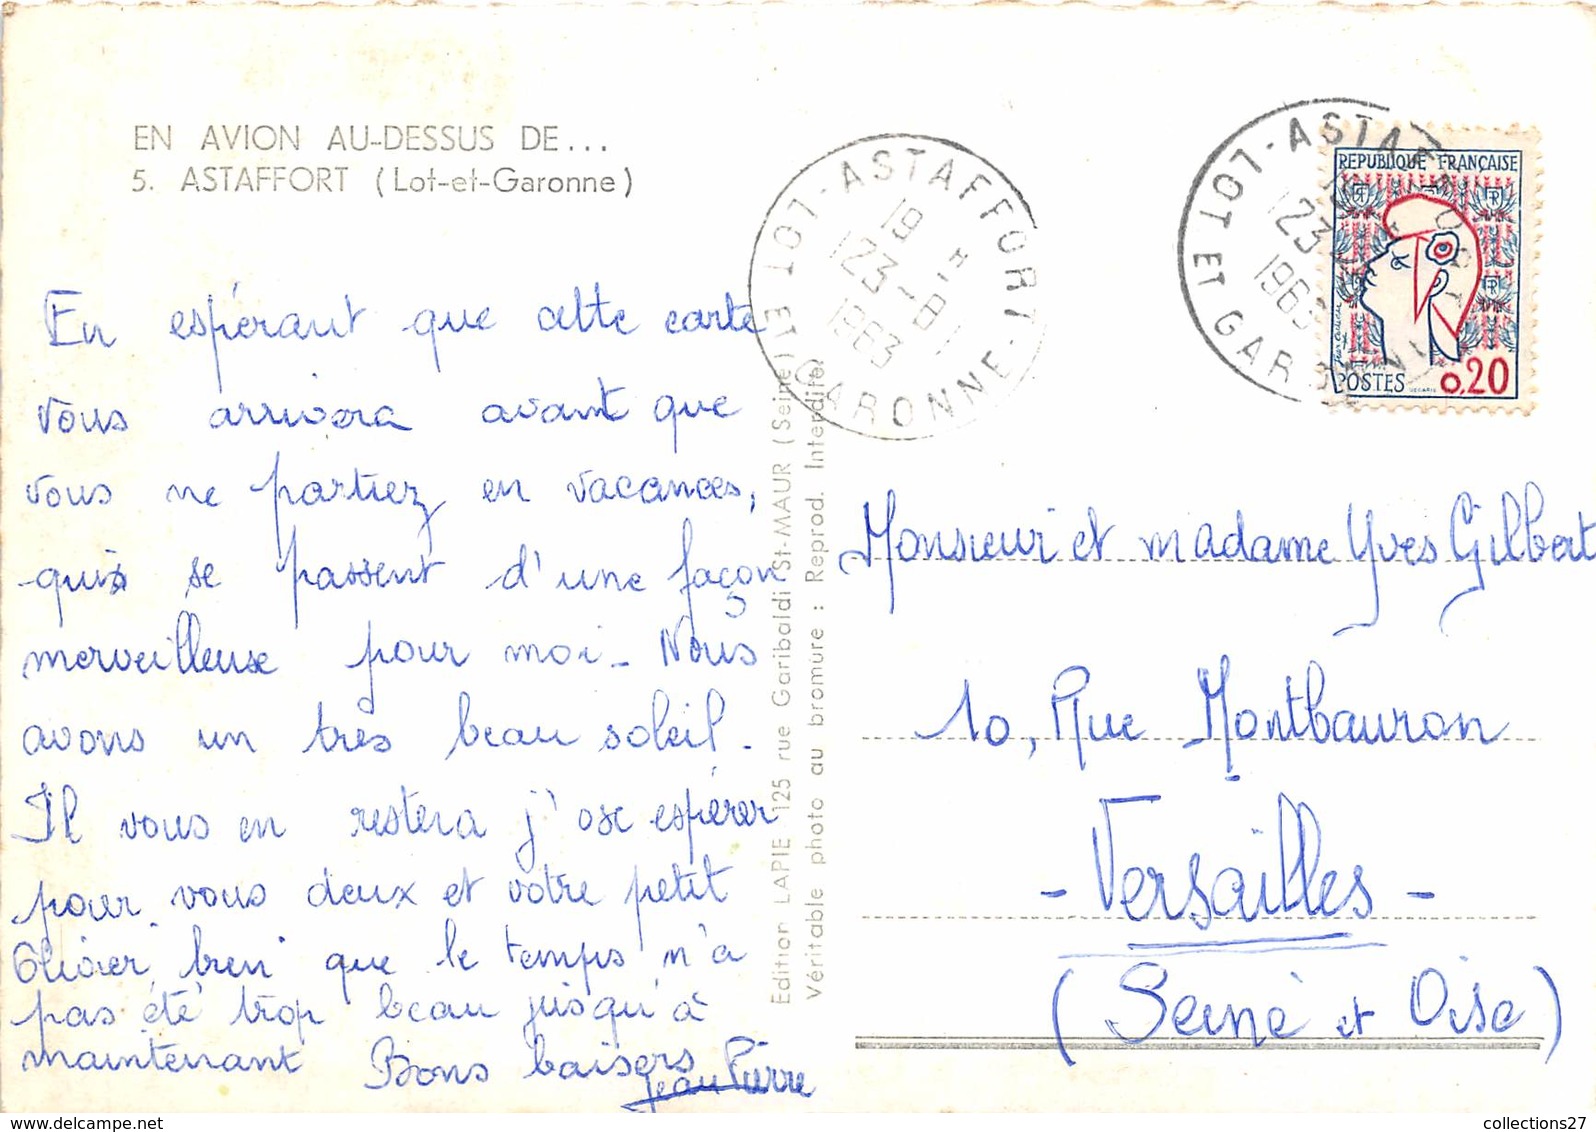 EN AVION AU-DESSUS DE...
5. ASTAFFORT (Lot-et-Garonne)
En espérant que cette carte
vous arrivera avant que
vous ne partiez en vacances,
qui se passent d'une façon
merveilleuse pour moi_ Nous
avons un très beau soleil.
Il vous en restera j'ose espérer
pour vous deux et votre petit
Olivier, bien que le temps n'a
pas été trop beau jusqu'à
maintenant Bons baisers
Jean Pierre
Edition LAPIE 125 rue Garibaldi St-MAUR (Seine)
Véritable photo au bromure : Reprod. Interdite
ASTAFFORT
LOT ET GARONNE
19 H
23 - 8
1963
ASTAFFORT
LOT ET GARONNE
23
1963
REPUBLIQUE FRANÇAISE
POSTES 0,20
Monsieur et madame Yves Gilbert
10, Rue Montbauron
- Versailles -
(Seine et Oise)
collections27